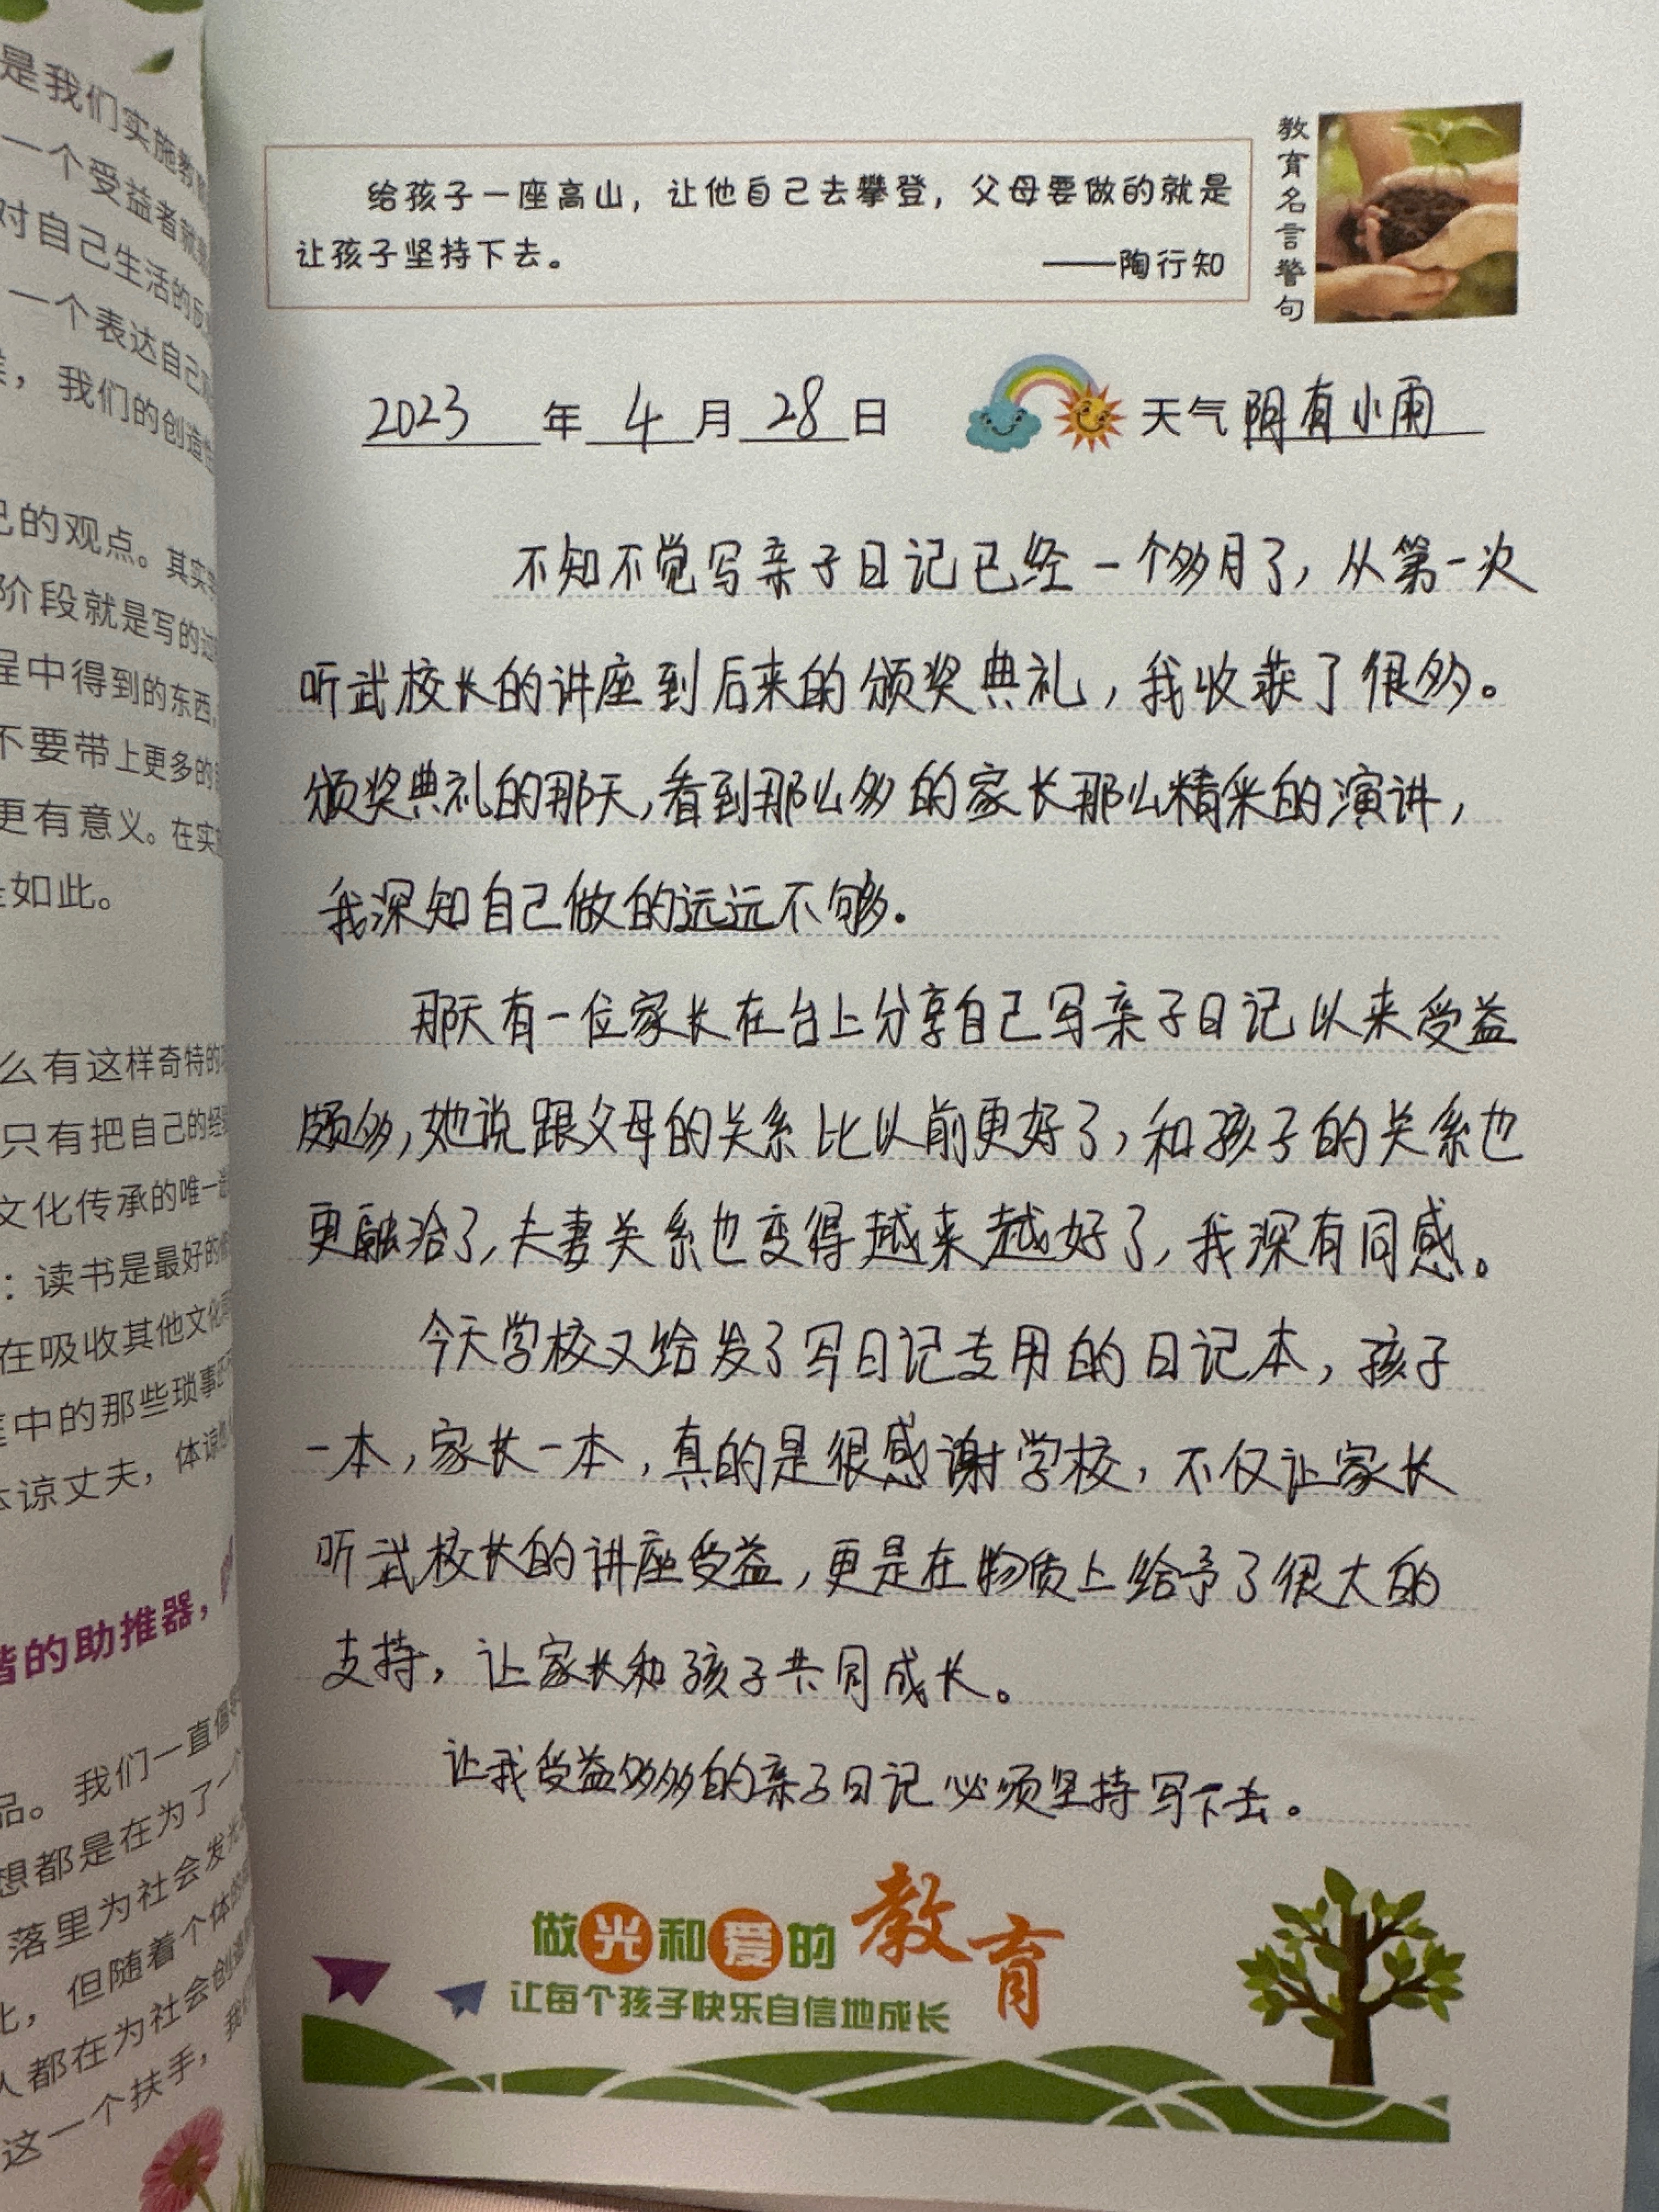 是我们实施教
一个受益者就
对自己生活的反
一个表达自己
，我们的创造性
己的观点。其实
阶段就是写的过
程中得到的东西，
不要带上更多的
更有意义。在实
如此。
么有这样奇特的
只有把自己的经
文化传承的唯一
：读书是最好的
在吸收其他文化
中的那些琐事
体谅丈夫，体谅
的助推器，
品。我们一直倡
想都是在为了一个
落里为社会发光
化，但随着个体的
人都在为社会创造
这一个扶手，我
给孩子一座高山，让他自己去攀登，父母要做的就是
让孩子坚持下去。 ——陶行知
教育名言警句
2023 年 4 月 28 日 天气 阴有小雨
不知不觉写亲子日记已经一个多月了，从第一次
听武校长的讲座到后来的颁奖典礼，我收获了很多。
颁奖典礼的那天，看到那么多的家长那么精采的演讲，
我深知自己做的远远不够。
那天有一位家长在台上分享自己写亲子日记以来受益
颇多，她说跟父母的关系比以前更好了，和孩子的关系也
更融洽了，夫妻关系也变得越来越好了，我深有同感。
今天学校又给发了写日记专用的日记本，孩子
一本，家长一本，真的是很感谢学校，不仅让家长
听武校长的讲座受益，更是在物质上给予了很大的
支持，让家长和孩子共同成长。
让我受益多多的亲子日记必须坚持写下去。
做光和爱的教育
让每个孩子快乐自信地成长